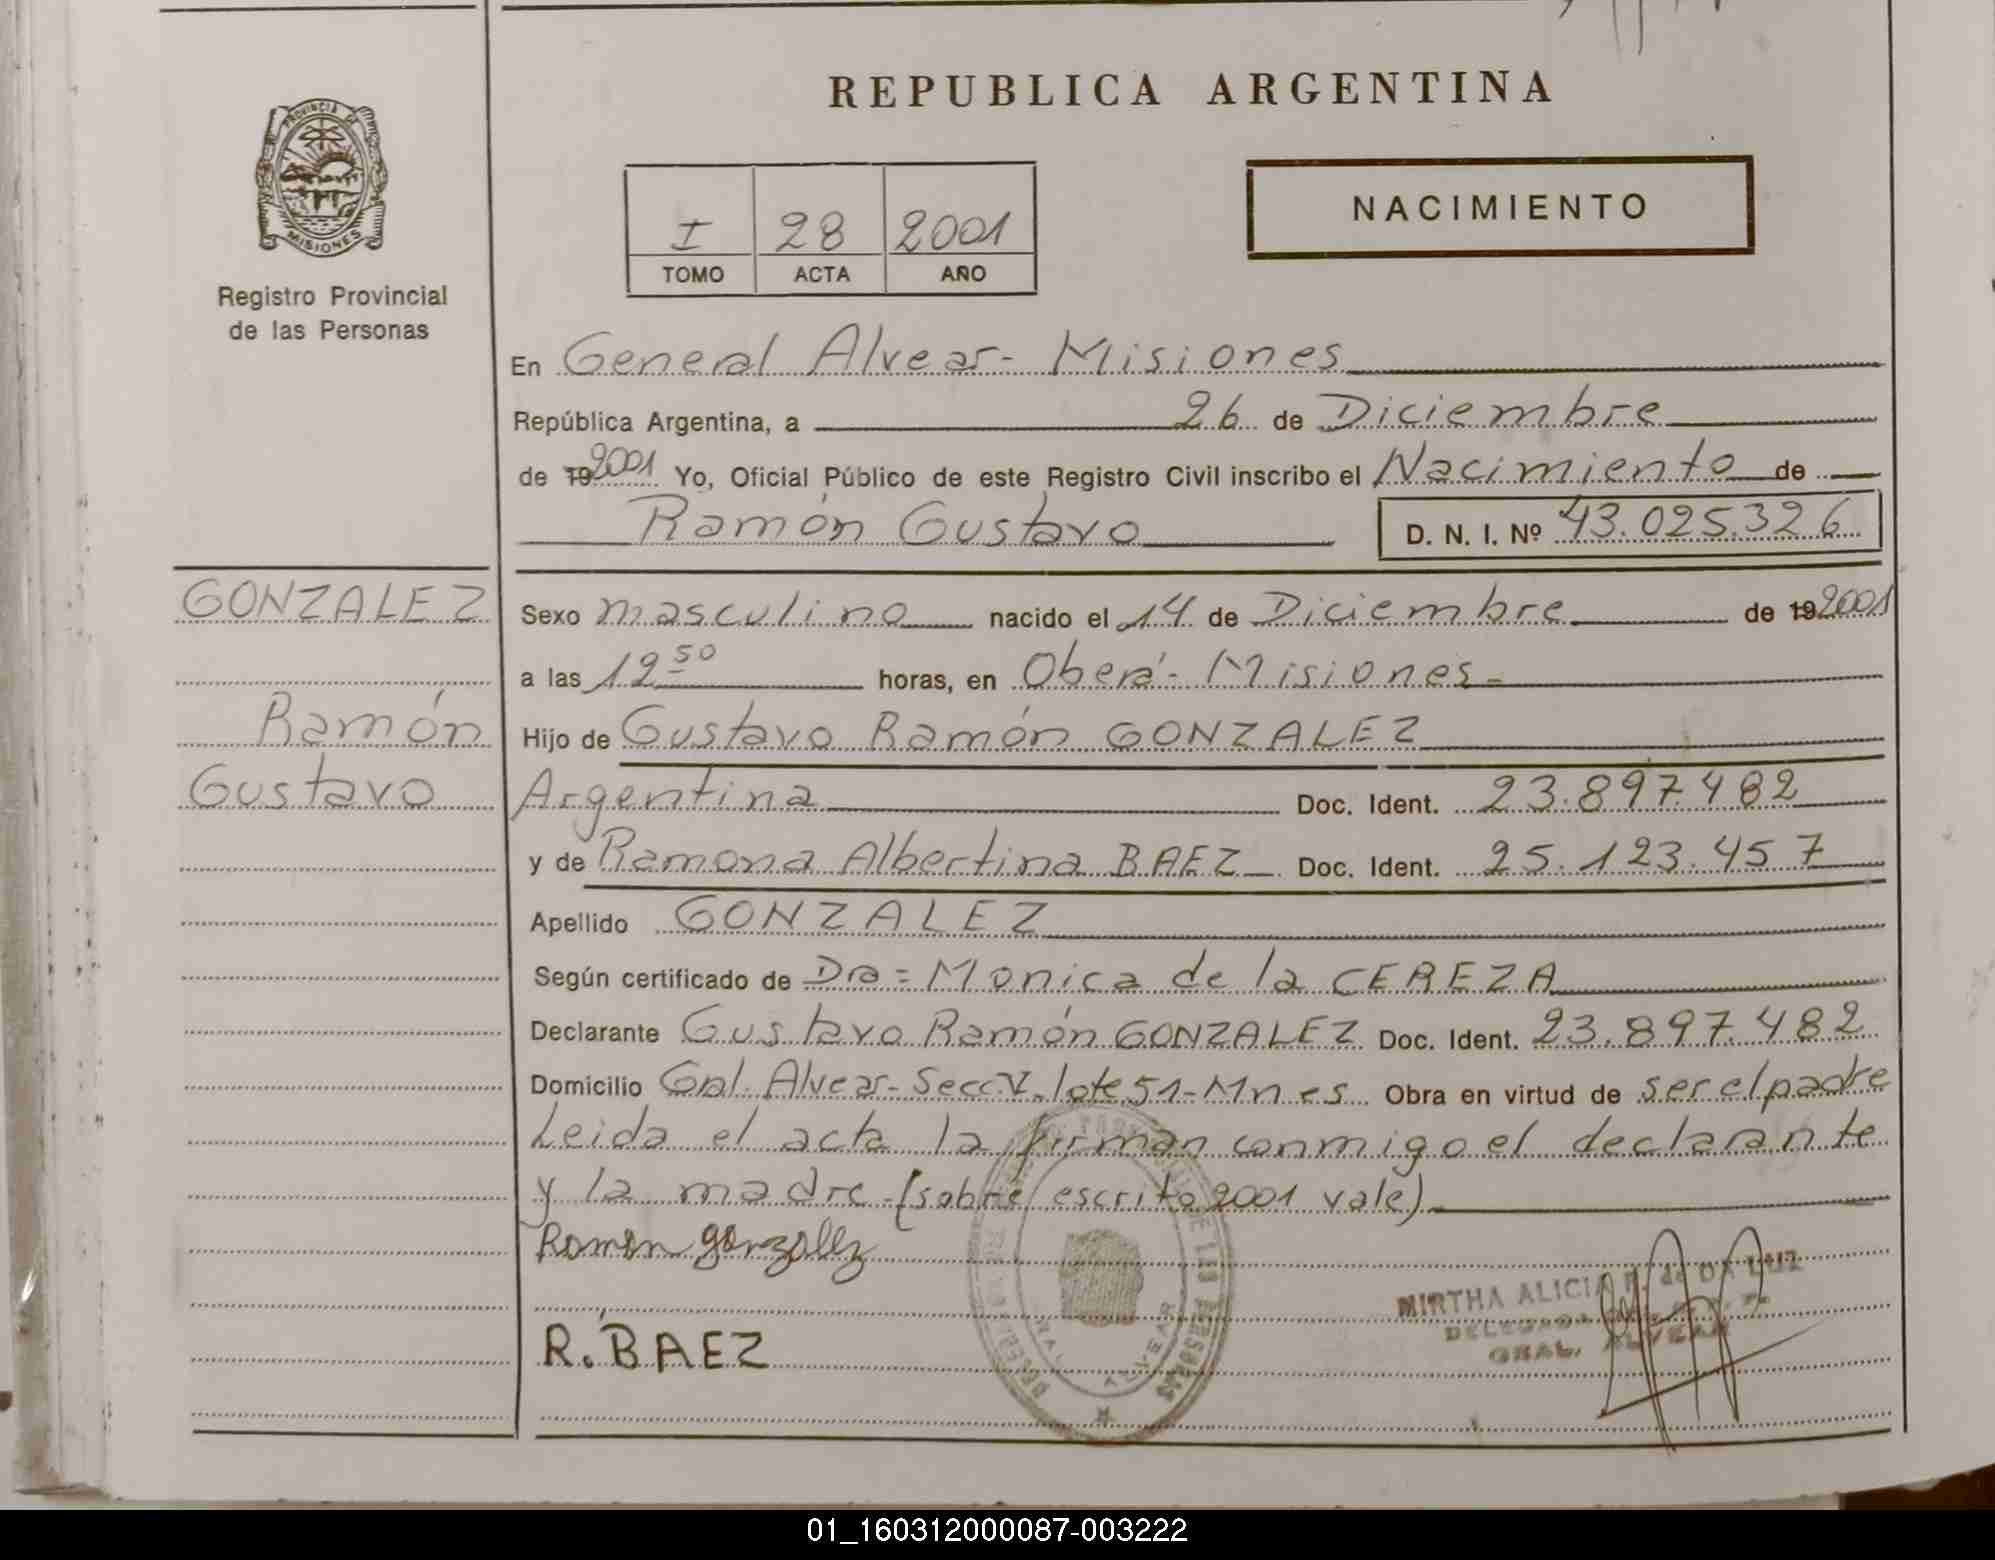 REPUBLICA ARGENTINA
PROVINCIA DE MISIONES
Registro Provincial
de las Personas
I 28 2001
TOMO ACTA AÑO
NACIMIENTO
En General Alvear - Misiones
República Argentina, a 26 de Diciembre
de 192001 Yo, Oficial Público de este Registro Civil inscribo el Nacimiento de
Ramón Gustavo D. N. I. Nº 43.025.326
GONZALEZ
Ramón
Gustavo
Sexo masculino nacido el 14 de Diciembre de 192001
a las 12 50 horas, en Oberá - Misiones -
Hijo de Gustavo Ramón GONZALEZ
Argentina Doc. Ident. 23.897.482
y de Ramona Albertina BAEZ Doc. Ident. 25.123.457
Apellido GONZALEZ
Según certificado de Dra = Monica de la CEREZA
Declarante Gustavo Ramón GONZALEZ Doc. Ident. 23.897.482
Domicilio Gral. Alvear - Secc. V. lote 51 - Mnes Obra en virtud de ser el padre
Leida el acta la firman conmigo el declarante
y la madre - (sobre escrito 2001 vale)
Ramon gonzalez
MIRTHA ALICIA de DA LUZ
DELEGADA
GRAL. ALVEAR
R. BAEZ
DE LAS PERSONAS
ALVEAR
01_160312000087-003222